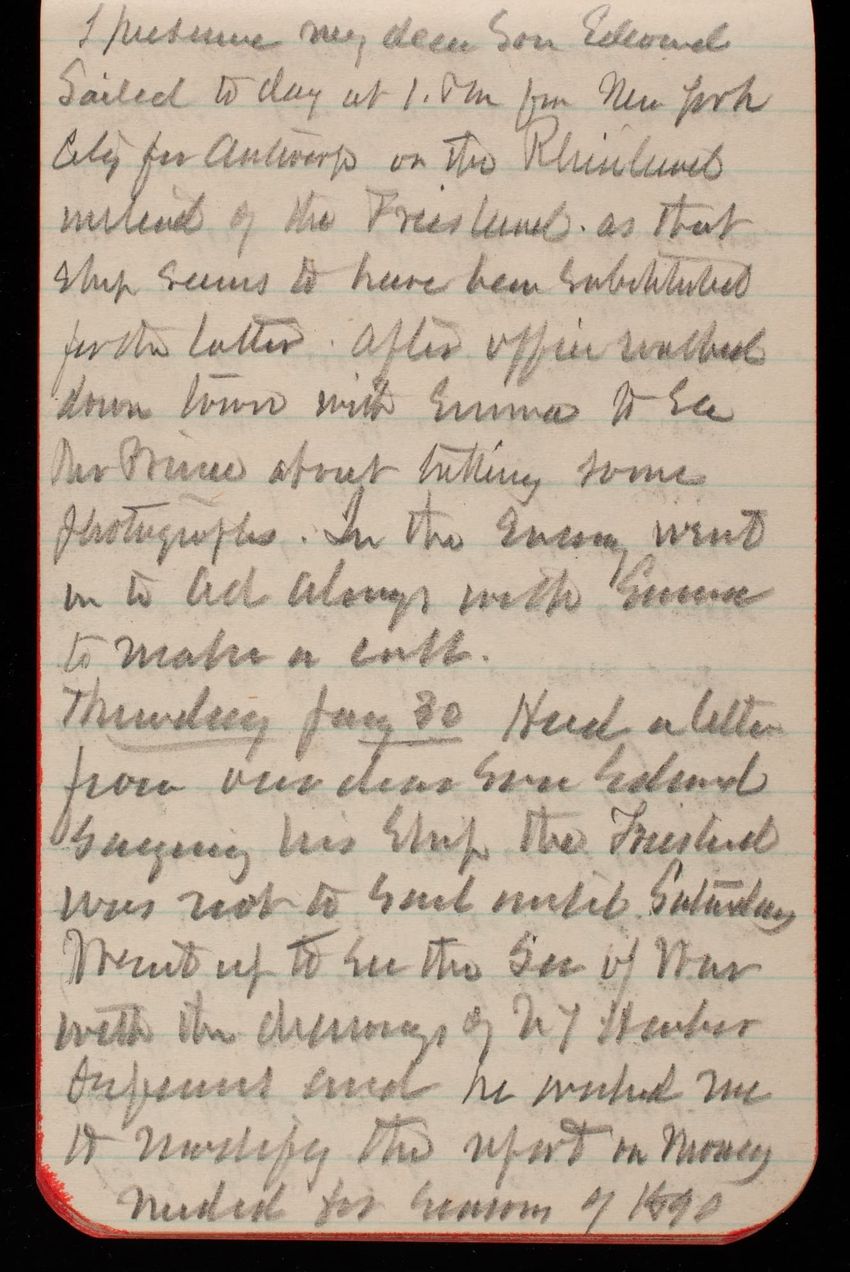 I presume my dear Son Edward
Sailed to day at 1. P m fm New York
City for Antwerp on the Rhineland
instead of the Friesland. as that
Ship seems to have been substituted
for the latter. After office walked
down town with Emma to see
Mr Prince about taking some
photographs. In the Evening went
in to with Emma
to make a call.
Thursday Jany 30 Had a letter
from our dear Son Edward
Saying his Ship the Friesland
was not to Sail until Saturday
Went up to See the Sec of War
with the drawings of N Y Harbor
defenses and he wished me
to modify the report on Money
needed for Seasons of 1890